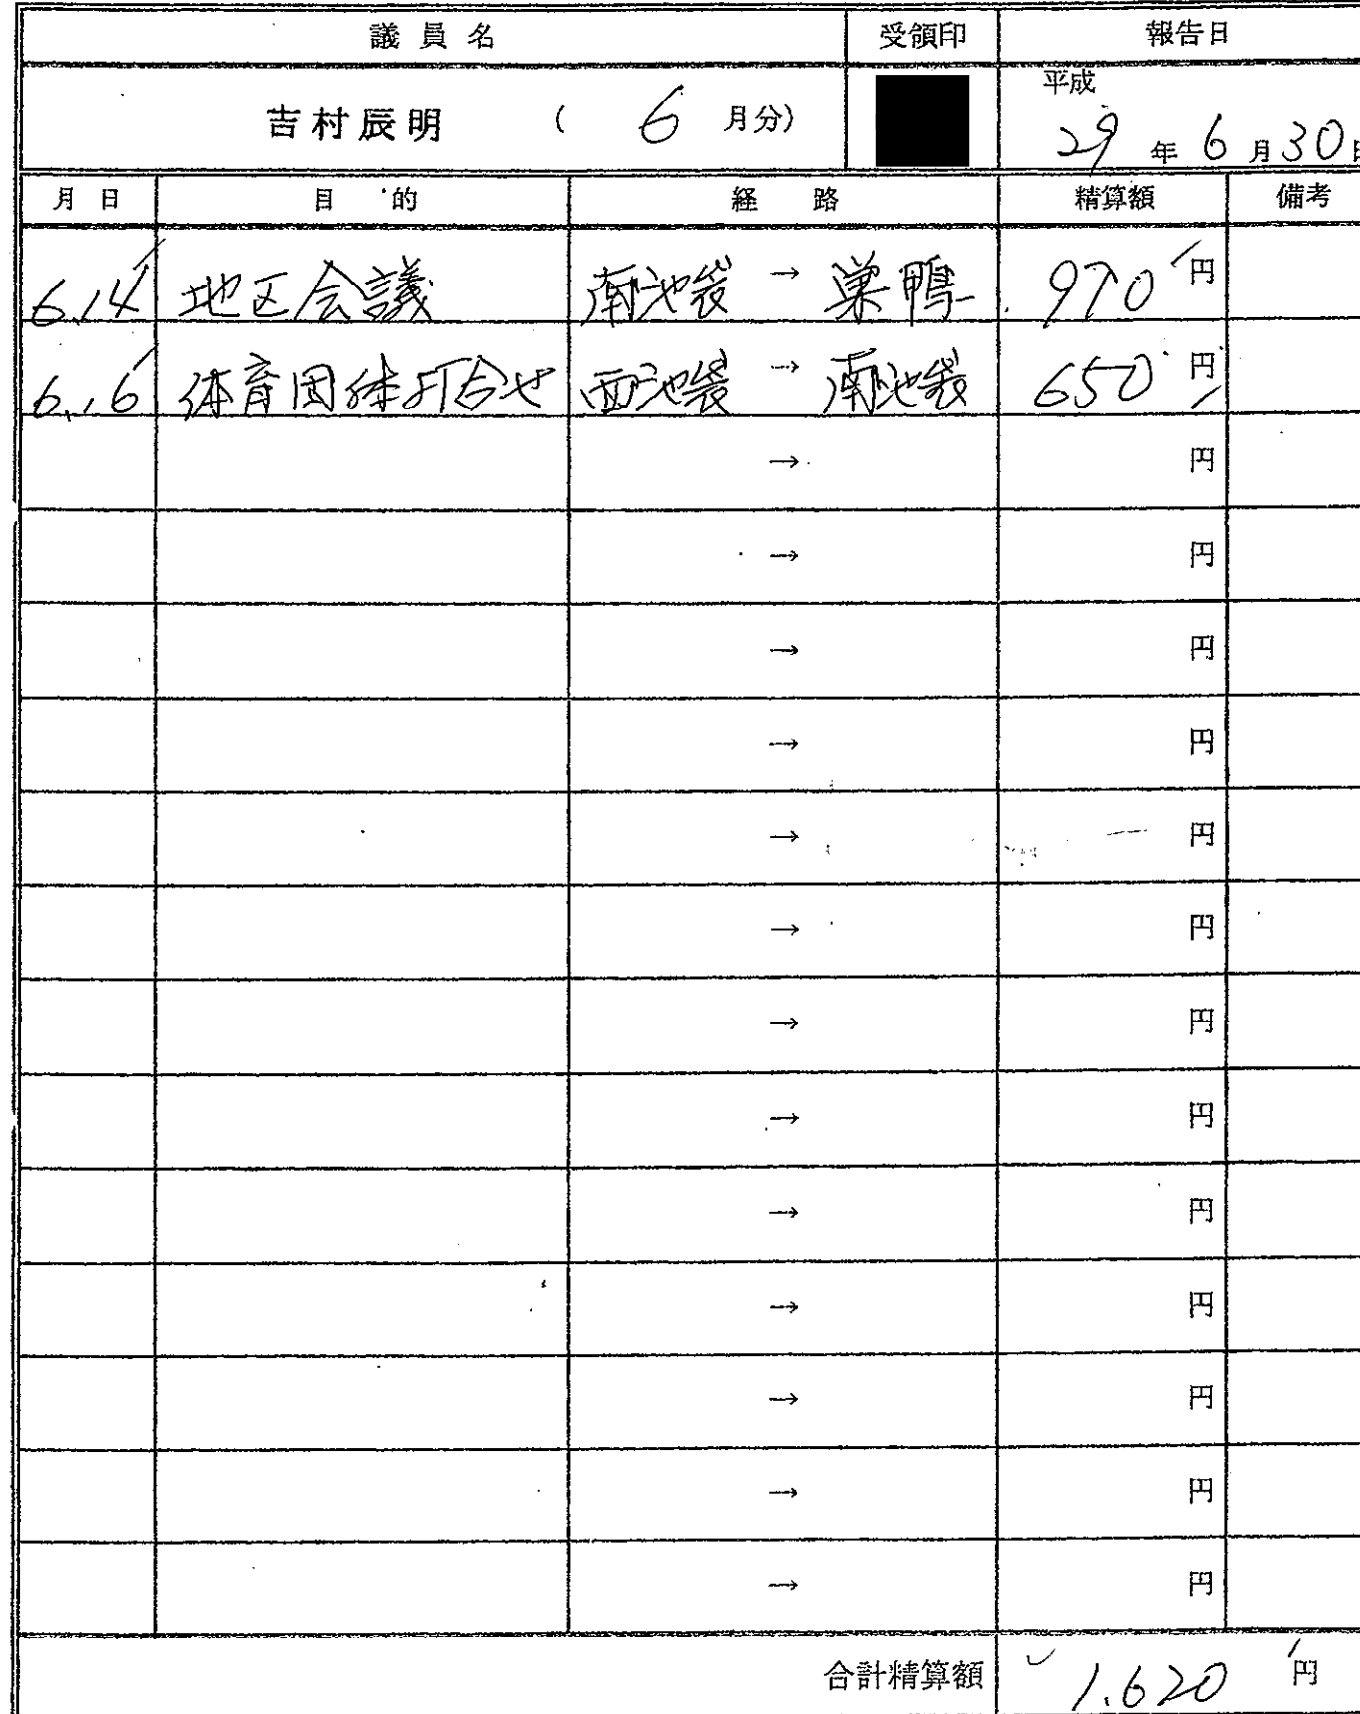 議員名 受領印 報告日
吉村辰明 ( 6 月分) 平成 29 年 6 月 30 日
月日 目的 経路 精算額 備考
6.14 地区会議 南池袋 → 巣鴨 970 円
6.16 体育団体打合せ 西池袋 → 南池袋 650 円
→ 円
→ 円
→ 円
→ 円
→ 円
→ 円
→ 円
→ 円
→ 円
→ 円
→ 円
→ 円
→ 円
合計精算額 1.620 円